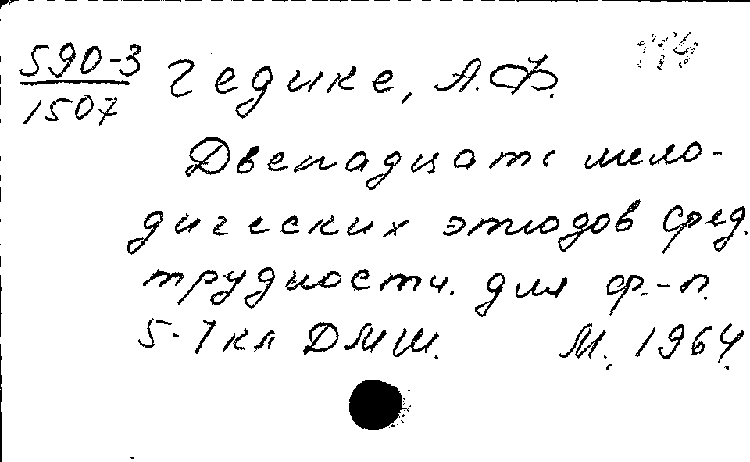 590-3 Гедике, А.Ф.
1507
Двенадцать мело-
дических этюдов сред.
трудности. для ф.-п.
5-7 кл ДМШ. М., 1964.